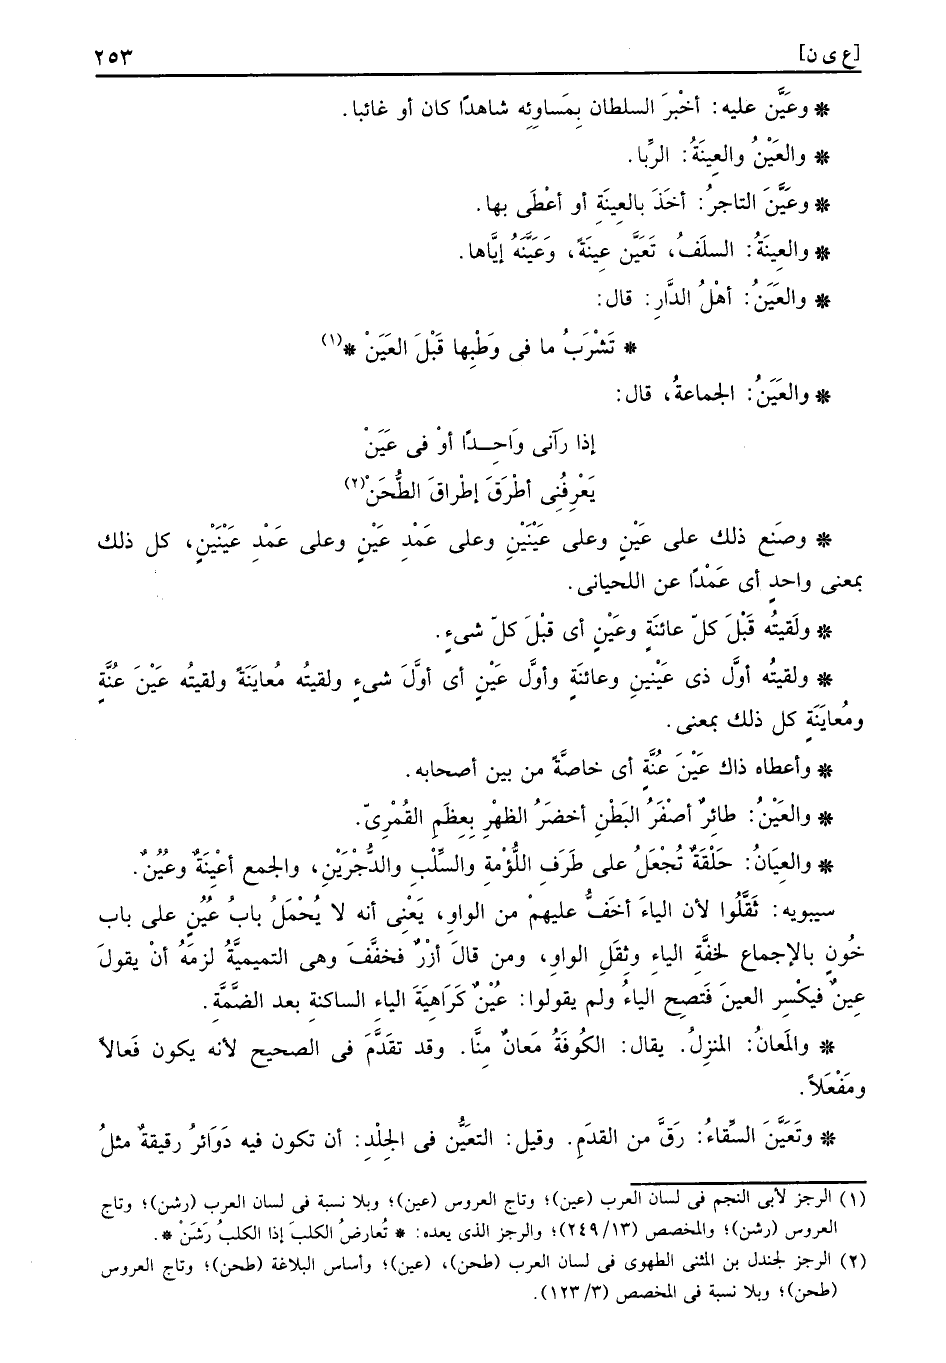 [ع ى ن] ٢٥٣
* وعَيَّن عليه: أخْبرَ السلطان بِمَساوِئِه شاهدًا كان أو غائبا.
* والعَيْنُ والعِينَةُ: الرِّبا.
* وعَيَّنَ التاجرُ: أخَذَ بالعِينَةِ أو أعْطَى بها.
* والعِينَةُ: السلَفُ، تَعَيَّن عِينَةً، وَعَيَّنَهُ إيَّاها.
* والعَيَنُ: أهْلُ الدَّارِ: قال:
* تَشْرَبُ ما فى وَطْبِها قَبْلَ العَيَنْ *(١)
* والعَيَنُ: الجماعةُ، قال:
إذا رَآنى وَاحِـــدًا أوْ فى عَيَنْ
يَعْرِفُنِى أطْرَقَ إطْراقَ الطُّحَنْ(٢)
* وصَنَع ذلك على عَيْنٍ وعلى عَيْنَيْنِ وعلى عَمْدِ عَيْنٍ وعلى عَمْدِ عَيْنَيْنِ، كل ذلك
بمعنى واحدٍ أى عَمْدًا عن اللحيانى.
* ولَقيتُه قَبْلَ كلّ عائنَةٍ وعَيْنٍ أى قبْلَ كلّ شىءٍ.
* ولقيتُه أوَّل ذى عَيْنينِ وعائنَةٍ وأولَّ عَيْنٍ أى أولَّ شىءٍ ولقيتُه مُعاينَةً ولقيتُه عَيْنَ عُنَّةٍ
ومُعايَنَةٍ كل ذلك بمعنى.
* وأعطاه ذاك عَيْنَ عُنَّةٍ أى خاصَّةً من بين أصحابه.
* والعَيْنُ: طائرٌ أصْفَرُ البَطْنِ أخضَرُ الظهْرِ بِعِظَمِ القُمْرِىّ.
* والعِيَانُ: حَلْقَةٌ تُجْعَلُ على طَرَفِ اللُّؤْمةِ والسِّلْبِ والدُّجْرَيْنِ، والجمع أعْيِنَةٌ وعُيُنٌ.
سيبويه: ثَقَّلُوا لأن الياءَ أخَفُّ عليهمْ من الواوِ، يَعْنِى أنه لا يُحْمَلُ بابُ عُيُنٍ على باب
خُونٍ بالإجماع لخفَّةِ الياءِ وثقَلِ الواوِ، ومن قالَ أزْرٌ فخفَّفَ وهى التميميَّةُ لزمَهُ أنْ يقولَ
عِينٌ فيكْسِر العينَ فَتصِح الياءُ ولم يقولوا: عُيْنٌ كَرَاهِيَةَ الياءِ الساكنة بعد الضمَّةِ.
* والمَعانُ: المنزِلُ. يقال: الكُوفَةُ مَعانٌ مِنَّا. وقد تقدَّمَ فى الصحيح لأنه يكون فَعالاً
ومَفْعَلاً.
* وتَعَيَّنَ السِّقاءُ: رَقَّ من القدَمِ. وقيل: التعَيُّن فى الجِلْدِ: أن تكون فيه دَوَائرُ رقيقةٌ مثلُ
(١) الرجز لأبى النجم فى لسان العرب (عين)؛ وتاج العروس (عين)؛ وبلا نسبة فى لسان العرب (رشن)؛ وتاج
العروس (رشن)؛ والمخصص (١٣/ ٢٤٩)؛ والرجز الذى يعده: * تُعارضُ الكلبَ إذا الكلبُ رَشَنْ *.
(٢) الرجز لجندل بن المثنى الطهوى فى لسان العرب (طحن)، (عين)؛ وأساس البلاغة (طحن)؛ وتاج العروس
(طحن)؛ وبلا نسبة فى المخصص (٣/ ١٢٣).